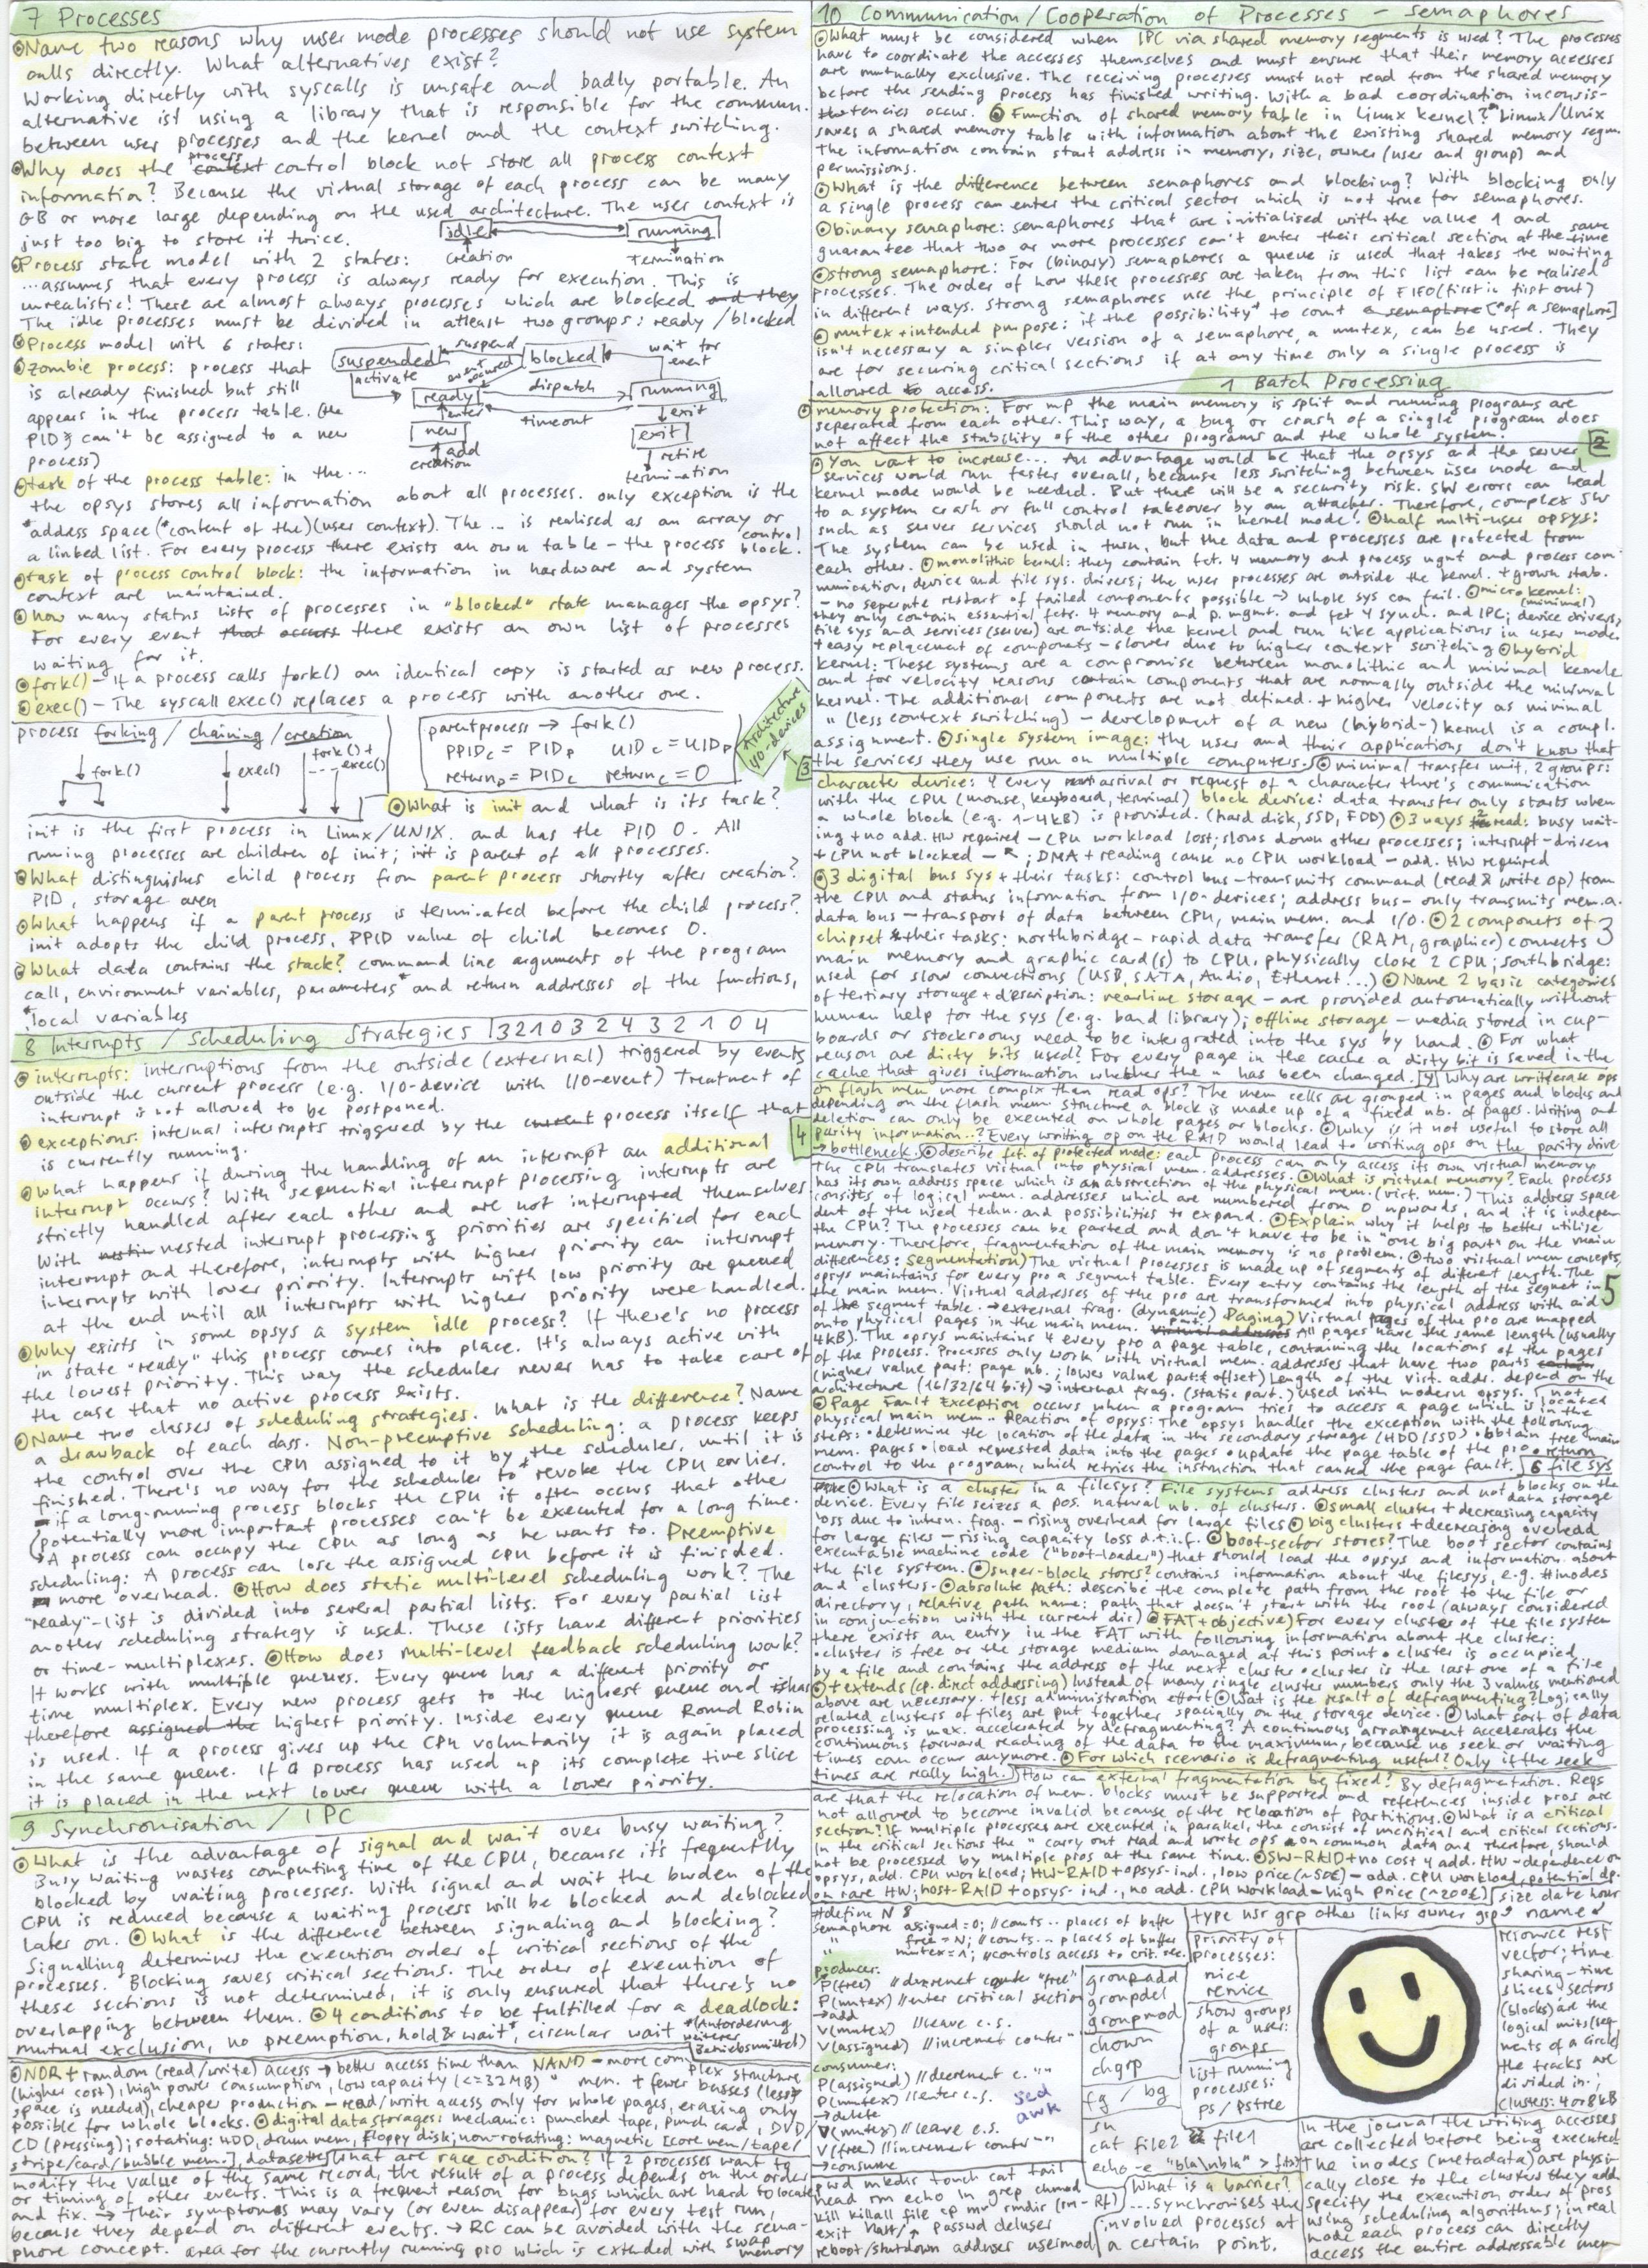 7 Processes
Name two reasons why user mode processes should not use system
calls directly. What alternatives exist?
Working directly with syscalls is unsafe and badly portable. An
alternative ist using a library that is responsible for the commun.
between user processes and the kernel and the context switching.
Why does the process control block not store all process context
information? Because the virtual storage of each process can be many
GB or more large depending on the used architecture. The user context is
just too big to store it twice.
idle running
creation termination
Process state model with 2 states:
...assumes that every process is always ready for execution. This is
unrealistic! There are almost always processes which are blocked and they
The idle processes must be divided in atleast two groups: ready / blocked
Process model with 6 states:
suspended suspend blocked wait for event
activate event occured dispatch running
ready enter timeout exit
new add creation exit retire termination
zombie process: process that
is already finished but still
appears in the process table. (the
PID can't be assigned to a new
process)
task of the process table: in the ...
the opsys stores all information about all processes. only exception is the
*address space (*content of the)(user context). The ... is realised as an array or
a linked list. For every process there exists an own table - the process control block.
task of process control block: the information in hardware and system
context are maintained.
how many status lists of processes in "blocked" state manages the opsys?
For every event that occurs there exists an own list of processes
waiting for it.
fork() - If a process calls fork() an identical copy is started as new process.
exec() - The syscall exec() replaces a process with another one.
process forking / chaining / creation
fork() exec() fork() + exec()
parentprocess → fork()
PPIDc = PIDp UIDc = UIDp
returnp = PIDc returnc = 0
Architecture I/O-devices
3
What is init and what is its task?
init is the first process in Linux/UNIX. and has the PID 0. All
running processes are children of init; init is parent of all processes.
What distinguishes child process from parent process shortly after creation?
PID, storage area
What happens if a parent process is terminated before the child process?
init adopts the child process. PPID value of child becomes 0.
What data contains the stack? command line arguments of the program
call, environment variables, parameters* and return addresses of the functions,
*local variables
8 Interrupts / Scheduling Strategies 3210324 32104
interrupts: interruptions from the outside (external) triggered by events
outside the current process (e.g. I/O-device with I/O-event) Treatment of
interrupt is not allowed to be postponed.
exceptions: internal interrupts triggered by the current process itself that
is currently running.
What happens if during the handling of an interrupt an additional
interrupt occurs? With sequential interrupt processing interrupts are
strictly handled after each other and are not interrupted themselves
With nested interrupt processing priorities are specified for each
interrupt and therefore, interrupts with higher priority can interrupt
interrupts with lower priority. Interrupts with low priority are queued
at the end until all interrupts with higher priority were handled.
Why exists in some opsys a system idle process? If there's no process
in state "ready" this process comes into place. It's always active with
the lowest priority. This way the scheduler never has to take care of
the case that no active process exists.
Name two classes of scheduling strategies. What is the difference? Name
a drawback of each class. Non-preemptive scheduling: a process keeps
the control over the CPU assigned to it by the scheduler, until it is
finished. There's no way for the scheduler to revoke the CPU earlier.
- if a long-running process blocks the CPU it often occurs that other
(potentially more important processes can't be executed for a long time.
A process can occupy the CPU as long as he wants to. Preemptive
scheduling: A process can lose the assigned CPU before it is finished.
- more overhead. How does static multi-level scheduling work? The
"ready"-list is divided into several partial lists. For every partial list
another scheduling strategy is used. These lists have different priorities
or time-multiplexes. How does multi-level feedback scheduling work?
It works with multiple queues. Every queue has a different priority or
time multiplex. Every new process gets to the highest queue and has
therefore assigned the highest priority. Inside every queue Round Robin
is used. If a process gives up the CPU voluntarily it is again placed
in the same queue. If a process has used up its complete time slice
it is placed in the next lower queue with a lower priority.
9 Synchronisation / IPC
What is the advantage of signal and wait over busy waiting?
Busy waiting wastes computing time of the CPU, because it's frequently
blocked by waiting processes. With signal and wait the burden of the
CPU is reduced because a waiting process will be blocked and deblocked
later on. What is the difference between signaling and blocking?
Signalling determines the execution order of critical sections of the
processes. Blocking saves critical sections. The order of execution of
these sections is not determined, it is only ensured that there's no
overlapping between them. 4 conditions to be fulfilled for a deadlock:
mutual exclusion, no preemption, hold & wait*, circular wait *(Anforderung weiterer Betriebsmittel)
NOR + random (read/write) access → better access time than NAND - more complex structure
(higher cost), high power consumption, low capacity (<=32MB) " mem. + fewer busses (less
space is needed), cheaper production - read/write access only for whole pages, erasing only
possible for whole blocks. digital data storages: mechanic: punched tape, punch card, DVD/
CD (pressing); rotating: HDD, drum mem, floppy disk; non-rotating: magnetic [core mem/tape/
stripe/card/bubble mem.], What are race condition? If 2 processes want to
modify the value of the same record, the result of a process depends on the order
or timing of other events. This is a frequent reason for bugs which are hard to locate
and fix. → Their symptomes may vary (or even disappear) for every test run,
because they depend on different events. → RC can be avoided with the sema-
phore concept. area for the currently running pro which is extended with swap memory
10 Communication / Cooperation of Processes - semaphores
What must be considered when IPC via shared memory segments is used? The processes
have to coordinate the accesses themselves and must ensure that their memory accesses
are mutually exclusive. The receiving processes must not read from the shared memory
before the sending process has finished writing. With a bad coordination inconsis-
tencies occurs. Function of shared memory table in Linux kernel? Linux/Unix
saves a shared memory table with information about the existing shared memory segm.
The information contain start address in memory, size, owner (user and group) and
permissions.
What is the difference between semaphores and blocking? With blocking only
a single process can enter the critical sector which is not true for semaphores.
binary semaphore: semaphores that are initialised with the value 1 and
guarantee that two or more processes can't enter their critical section at the same time
strong semaphore: For (binary) semaphores a queue is used that takes the waiting
processes. The order of how these processes are taken from this list can be realised
in different ways. strong semaphores use the principle of FIFO (first in first out)
mutex + intended purpose: if the possibility* to count a semaphore [*of a semaphore]
isn't necessary a simpler version of a semaphore, a mutex, can be used. They
are for securing critical sections if at any time only a single process is
allowed to access.
1 Batch Processing
memory protection: For mp the main memory is split and running programs are
seperated from each other. This way, a bug or crash of a single program does
not affect the stability of the other programs and the whole system.
2
You want to increase... An advantage would be that the opsys and the server
services would run faster overall, because less switching between user mode and
kernel mode would be needed. But there will be a security risk. SW errors can lead
to a system crash or full control takeover by an attacker. Therefore, complex SW
such as server services should not run in kernel mode. half multi-user opsys:
The system can be used in turn, but the data and processes are protected from
each other. monolithic kernel: they contain fct. 4 memory and process mgmt and process com-
munication, device and file sys. drivers; the user processes are outside the kernel. + grown stab.
- no seperate restart of failed components possible → whole sys can fail. micro kernel: (minimal)
they only contain essential fcts. 4 memory and p. mgmt. and fct 4 synch. and IPC; device drivers,
file sys and services (server) are outside the kernel and run like applications in user mode.
+ easy replacement of componets - slower due to higher context switching hybrid
kernel: These systems are a compromise between monolithic and minimal kernels
and for velocity reasons contain components that are normally outside the minimal
kernel. The additional components are not defined. + higher velocity as minimal
" (less context switching) - development of a new (hybrid-)kernel is a compl.
assignment. single system image: the user and their applications don't know that
the services they use run on multiple computers. minimal transfer unit, 2 groups:
character device: 4 every arrival or request of a character there's communication
with the CPU (mouse, keyboard, terminal) block device: data transfer only starts when
a whole block (e.g. 1-4kB) is provided. (hard disk, SSD, FDD) 3 ways 2 read: busy wait-
ing + no add. HW required - CPU workload lost; slows down other processes; interrupt-driven
+ CPU not blocked - ; DMA + reading cause no CPU workload - add. HW required
3 digital bus sys + their tasks: control bus - transmits command (read & write op) from
the CPU and status information from I/O-devices; address bus - only transmits mem.a.
data bus - transport of data between CPU, main mem. and I/O. 2 componets of
chipset & their tasks: northbridge - rapid data transfer (RAM, graphics) connects 3
main memory and graphic card(s) to CPU, physically close 2 CPU; southbridge:
used for slow connections (USB, SATA, Audio, Ethernet...) Name 2 basic categories
of tertiary storage + description: nearline storage - are provided automatically without
human help for the sys (e.g. band library); offline storage - media stored in cup-
boards or stockrooms need to be intergrated into the sys by hand. For what
reason are dirty bits used? For every page in the cache a dirty bit is saved in the
cache that gives information whether the " has been changed. 4 Why are write/erase ops
on flash mem more complx than read ops? The mem cells are grouped in pages and blocks and
depending on the flash mem. structure a block is made up of a fixed nb. of pages. Writing and
deletion can only be executed on whole pages or blocks. Why is it not useful to store all
4 parity information..? Every writing op on the RAID would lead to writing ops on the parity drive
→ bottleneck. describe fct. of protected mode: each process can only access its own virtual memory
The CPU translates virtual into physical mem. addresses. What is virtual memory? Each process
has its own address space which is an abstraction of the physical mem. (virt. mem.) This address space
consists of logical mem. addresses which are numbered from 0 upwards, and it is indepen
dent of the used techn. and possibilities to expand. Explain why it helps to better utilise
the CPU? The processes can be parted and don't have to be in "one big part" on the main
memory. Therefore, fragmentation of the main memory is no problem. two virtual mem concepts,
differences: Segmentation) The virtual processes is made up of segments of different length. The
opsys maintains for every pro a segment table. Every entry contains the length of the segmet in 5
the main mem. Virtual addresses of the pro are transformed into physical address with aid
of the segment table. → external frag. (dynamic) Paging) Virtual pages of the pro are mapped
onto physical pages in the main mem. All pages have the same length (usually
4kB). The opsys maintains 4 every pro a page table, containing the locations of the pages
of the process. Processes only work with virtual mem. addresses that have two parts
(higher value part: page nb.; lower value part: offset) Length of the virt. addr. depend on the
architecture (16/32/64 bit) → internal frag. (static part.) used with modern opsys.
Page Fault Exception occurs when a program tries to access a page which is not located in the
physical main mem. Reaction of opsys: The opsys handles the exception with the following
steps: • determine the location of the data in the secondary storage (HDD/SSD) • obtain free main
mem. pages • load requested data into the pages • update the page table of the pro • return
control to the program, which retries the instruction that caused the page fault. 6 file sys
What is a cluster in a filesys? File systems address clusters and not blocks on the
device. Every file seizes a pos. natural nb. of clusters. small cluster + decreasing capacity data storage
loss due to intern. frag. - rising overhead for large files big clusters + decreasing overhead
for large files - rising capacity loss d.t.i.f. boot-sector stores? The boot sector contains
executable machine code ("boot-loader") that should load the opsys and information about
the file system. super-block stores? contains information about the filesys, e.g. #inodes
and clusters. absolute path: describe the complete path from the root to the file or
directory, relative path name: path that doesn't start with the root (always considered
in conjunction with the current dir) FAT + objective) For every cluster of the file system
there exists an entry in the FAT with following information about the cluster:
• cluster is free or the storage medium damaged at this point • cluster is occupied
by a file and contains the address of the next cluster • cluster is the last one of a file
+ extends (cp. direct addressing) Instead of many single cluster numbers only the 3 values mentioned
above are necessary. + less administration effort What is the result of defragmenting? Logically
related clusters of files are put together spacially on the storage device. What sort of data
processing is max. accelerated by defragmenting? A continuous arrangement accelerates the
continuous forward reading of the data to the maximum, because no seek or waiting
times can occur anymore. For which scenario is defragmenting useful? Only if the seek
times are really high. How can external fragmentation be fixed? By defragmentation. Reqs
are that the relocation of mem. blocks must be supported and references inside pros are
not allowed to become invalid because of the relocation of partitions. What is a critical
section? If multiple processes are executed in parallel, the consist of uncritical and critical sections.
In the critical sections the " carry out read and write ops on common data and therefore, should
not be processed by multiple pros at the same time. SW-RAID + no cost 4 add. HW - dependence on
opsys, add. CPU workload; HW-RAID + opsys-ind., low price (~50€) - add. CPU workload, potential dp.
on rare HW; host-RAID + opsys-ind., no add. CPU workload - high price (~200€)
size date hour
type usr grp other links owner grp name
#define N 8
semaphore assigned = 0; //counts.. places of buffer
" free = N; //counts.. places of buffer
" mutex = 1; //controls access to crit. sec.
producer:
P(free) //decremet counter "free"
P(mutex) //enter critical section
→ add
V(mutex) //leave c.s.
V(assigned) //incremet conter "
consumer:
P(assigned) //decremet c. ""
P(mutex) //enter c.s.
→ delete
V(mutex) //leave c.s.
V(free) //incremet conter ""
→ consume
sed
awk
pwd mkdir touch cat tail
head rm echo ln grep chmod
kill killall file cp mv rmdir (rm -Rf)
exit passwd deluser
reboot/shutdown adduser usermod
groupadd
groupdel
groupmod
chown
chgrp
fg / bg
su
cat file2 file1
echo -e "bla\nbla" >
priority of
processes:
nice
renice
show groups
of a user:
groups
list running
processes:
ps / pstree
What is a barrier?
....synchronises the
involved processes at
a certain point.
resource rest
vector; time
sharing - time
slices; sectors
(blocks) are the
logical units (seg-
ments of a circle)
the tracks are
divided in;
clusters: 4 or 8kB
In the journal the writing accesses
are collected before being executed
The inodes (metadata) are physi-
cally close to the clusters they add
specify the execution order of pros
using scheduling algorithms; in real
mode each process can directly
access the entire addressable mem